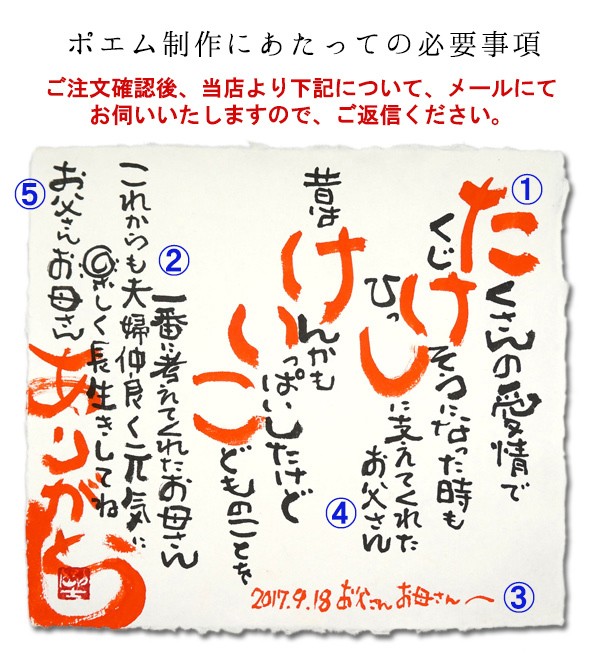 ポエム制作にあたっての必要事項
ご注文確認後、当店より下記について、メールにて
お伺いいたしますので、ご返信ください。
①
たくさんの愛情で
くじけそうになった時も
ひっしに支えてくれた
お父さん
④
昔はけんかも
いっぱいしたけど
こどものことを
②
一番に考えてくれたお母さん
これからも夫婦仲良く元気に
楽しく長生きしてね
⑤
お父さんお母さん
ありがとう
2017.9.18 お父さん お母さんへ
③